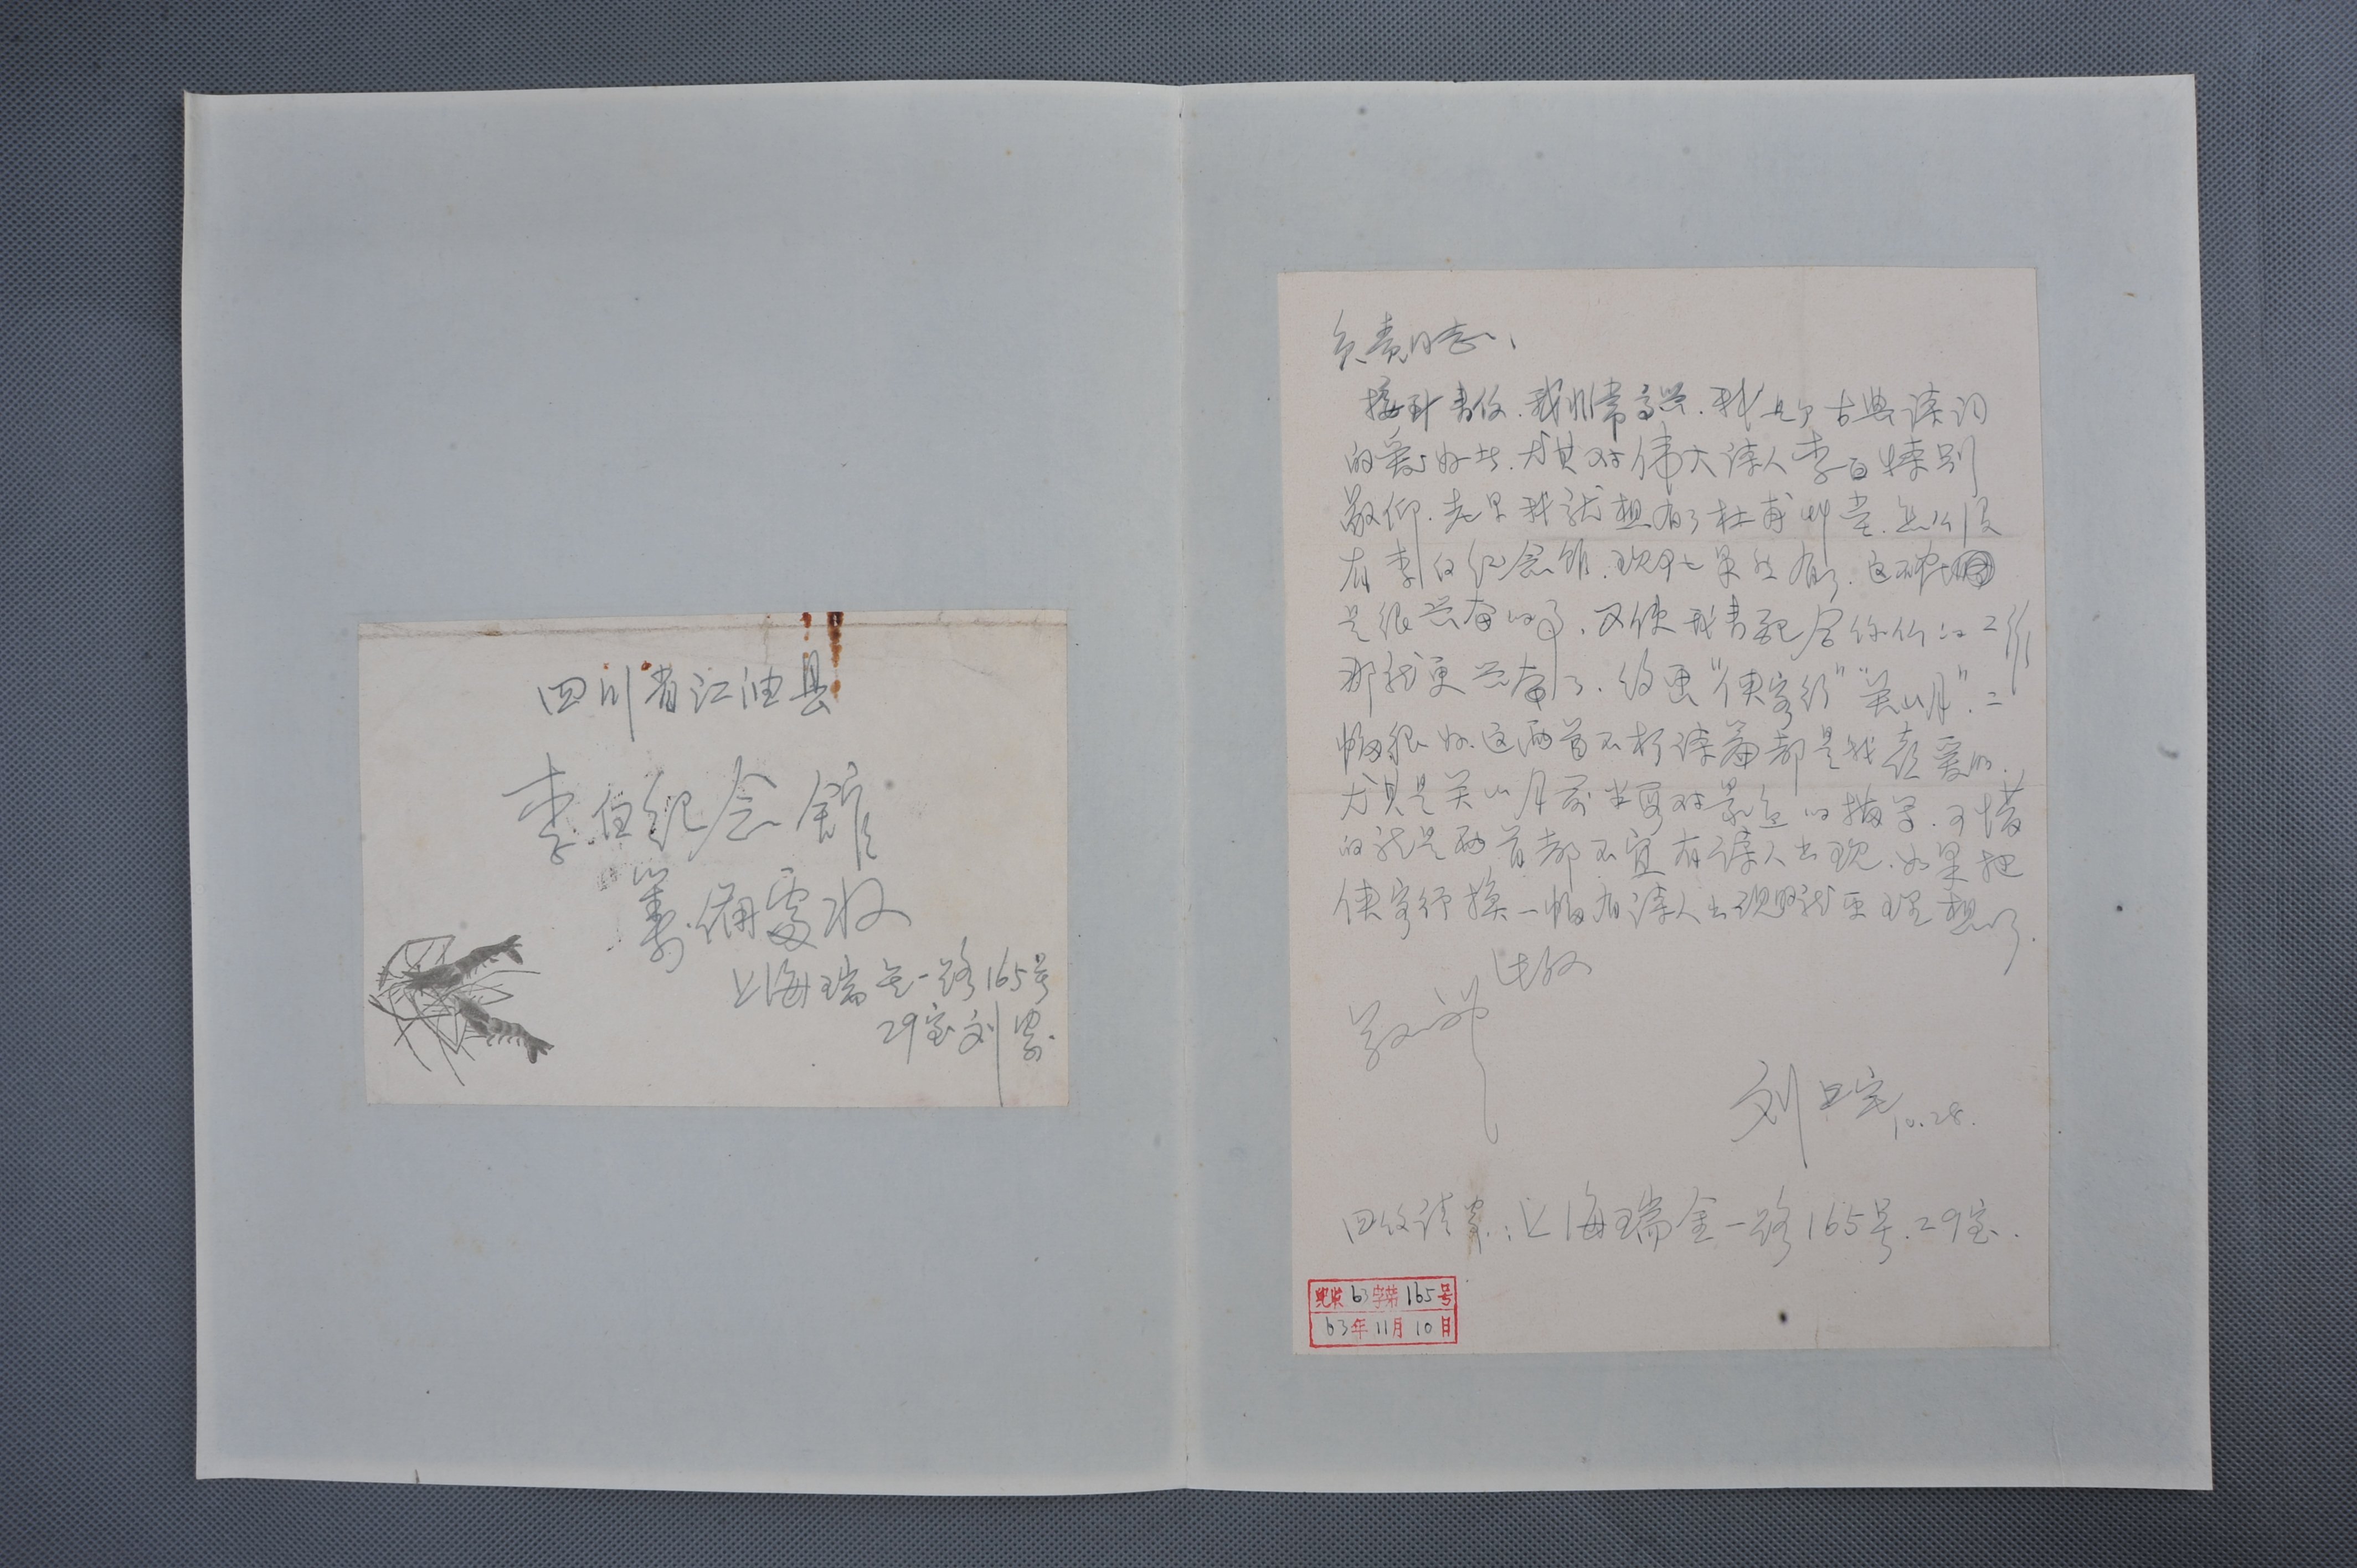 四川省江油县
李白纪念馆
筹備處收
上海瑞金一路165号
29室刘寄
负责同志:
接到书信.我非常高兴.我是个古典诗词
的爱好者.尤其对伟大诗人李白特别
敬仰.老早我就想有了杜甫草堂.怎么没
有李白纪念馆.现在果然有了.这确
是很兴奋的事.又使我书配合你们的工作
那就更兴奋了.约画"侠客行""关山月".二
幅很好.这两首不朽诗篇都是我喜爱的.
尤其是关山月前半写对景色的描写.可惜
的就是两首都不宜有诗人出现.如果把
侠客行换一幅有诗人出现的就更理想了.
此致
敬礼
刘旦宅
10.28.
回信请寄:上海瑞金一路165号.29室.
63字第165号
63年11月10日